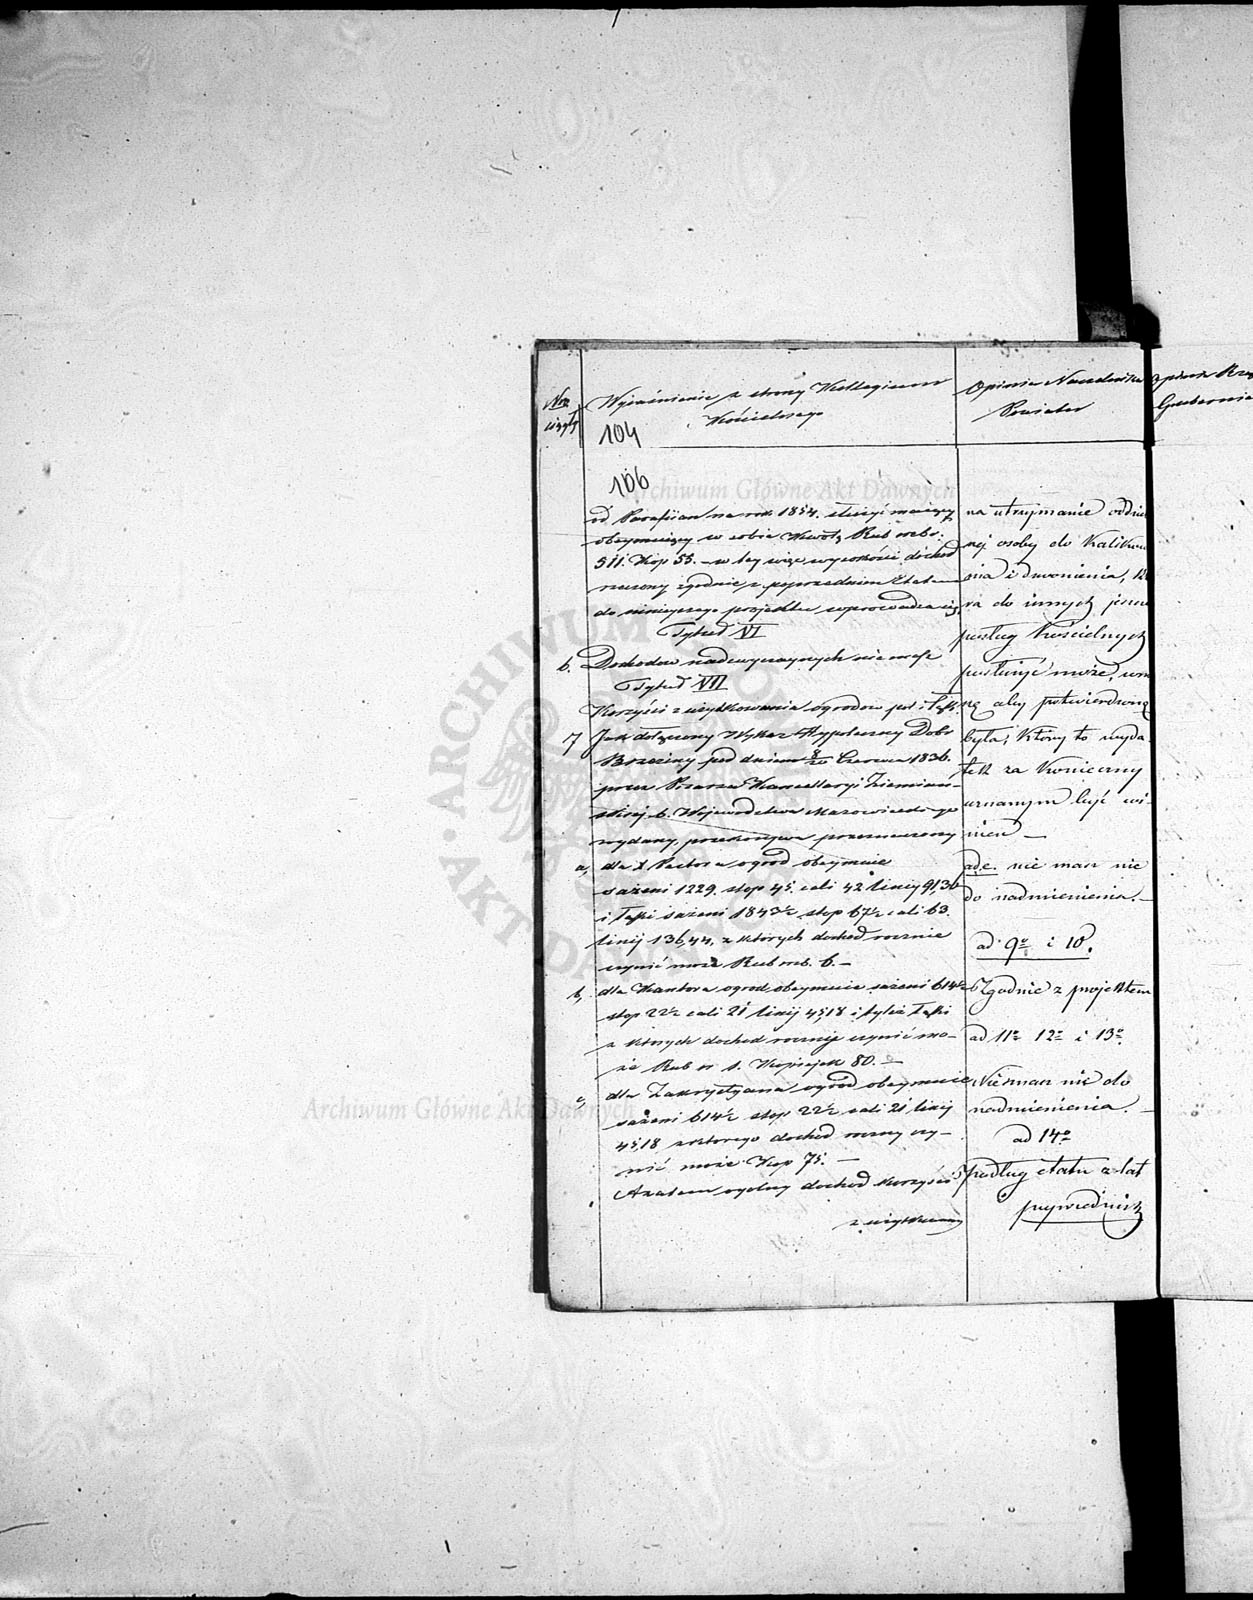 Nro
Wyjaśnienie z strony Kollegium
Kościelnego
Opinia Naczelnika
Powiatu
Opinia Rzą
Gubernia
104
106
Archiwum Główne Akt Dawnych
od Parafiian na rok 1854. służyć mającej
obeymujący w sobie kwotę Rub srebr:
511. Kop 55. – w tey więc wysokości dochód
rzeczony zgodnie z poprzednim Etatem
do ninieyszego projektu wprowadza się.
Tytuł VI
6. Dochodów nadzwyczaynych nie masz
Tytuł VII
Korzyści z użytkowania ogrodów pól i łąk.
7 Jak dołączony Wykaz Hypoteczny Dobr
Brzeziny pod dniem 8/20 Czerwca 1836.
przez Pisarza Kancellaryi Ziemiań-
skiej b. Województwa Mazowieckiego
wydany, przekonywa przeznaczony
a, dla X Pastora ogród obeymuie
sążeni 1229. stop 45. cali 42 linij 91,36
i łąki sążeni 1843½ stop 67½ cali 63.
linij 136,44, z których dochód rocznie
czynić może Rub sr. 6. –
b, dla Kantora ogród obeymuie sążeni 614½
stop 22½ cali 21 linij 45,18 i tyleż łąki
z których dochód roczny czynić mo-
że Rub sr 1. Kopiejek 80. –
c, dla Zakrystyana ogród obeymuie
sążeni 614½ stop 22½ cali 21 linij
45,18 z którego dochód roczny czy-
nić może Kop 75. –
A zatem ogólny dochód korzyści
z użytkowania
na utrzymanie oddziel
nej osoby do Kaliko
nia i dzwonienia, któ
ra do innych jeszcze
posług Kościelnych
posłużyć może,
aby potwierdzoną
była; który to wyda-
tek za konieczny
uznanym być wi-
nien –
ad c. nie masz nic
do nadmienienia. –
ad 9o i 10.
Zgodnie z projektem
ad 11o 12o i 13o
Niemasz nic do
nadmienienia. –
ad 14o
Podług etatu z lat
Archiwum Główne Akt Dawnych
ARCHIWUM GŁÓWNE AKT DAWNYCH